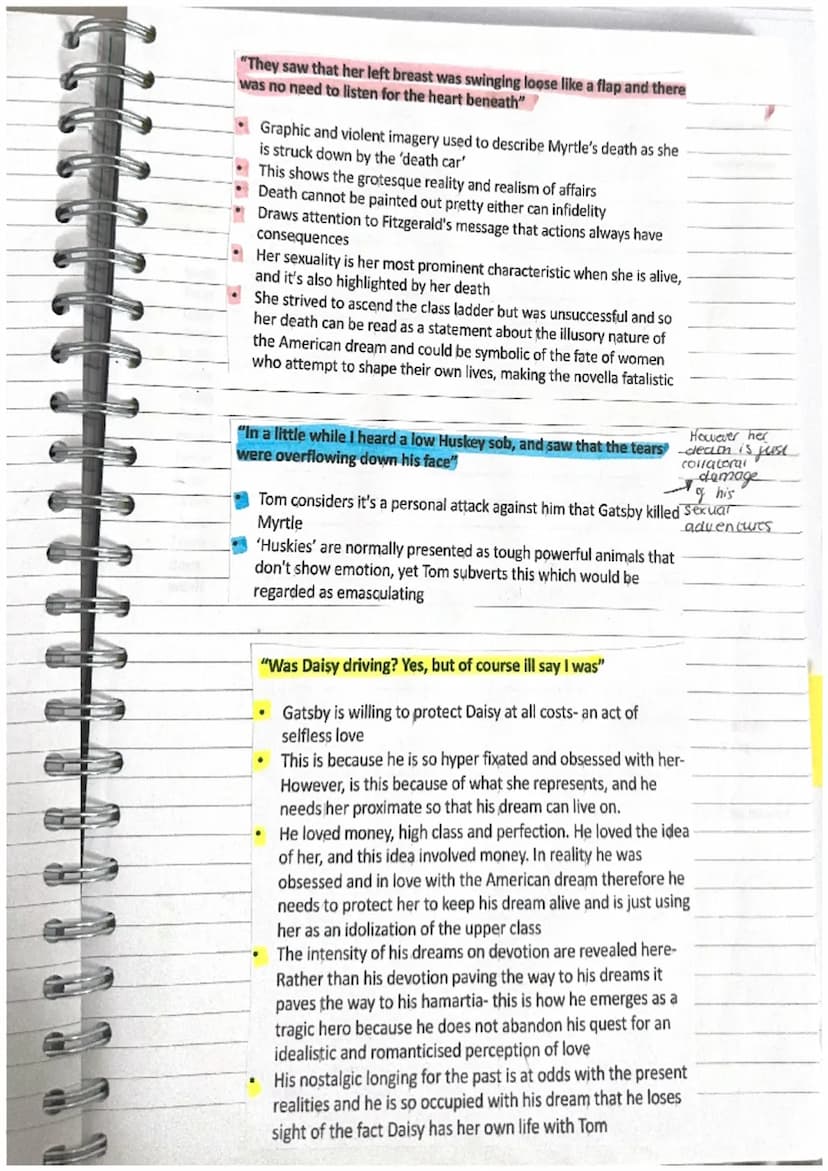 “They saw that her left breast was swinging loose like a flap and there
was no need to listen for the heart beneath”
• Graphic and violent imagery used to describe Myrtle’s death as she
is struck down by the ‘death car’
• This shows the grotesque reality and realism of affairs
• Death cannot be painted out pretty either can infidelity
• Draws attention to Fitzgerald's message that actions always have
consequences
• Her sexuality is her most prominent characteristic when she is alive,
and it's also highlighted by her death
• She strived to ascend the class ladder but was unsuccessful and so
her death can be read as a statement about the illusory nature of
the American dream and could be symbolic of the fate of women
who attempt to shape their own lives, making the novella fatalistic
“In a little while I heard a low Huskey sob, and saw that the tears
were overflowing down his face”
• Tom considers it’s a personal attack against him that Gatsby killed
Myrtle
• ‘Huskies’ are normally presented as tough powerful animals that
don’t show emotion, yet Tom subverts this which would be
regarded as emasculating
However her
death is just
collatoral
damage
of his
sexual
adventures
“Was Daisy driving? Yes, but of course ill say I was”
• Gatsby is willing to protect Daisy at all costs- an act of
selfless love
• This is because he is so hyper fixated and obsessed with her-
However, is this because of what she represents, and he
needs her proximate so that his dream can live on.
• He loved money, high class and perfection. He loved the idea
of her, and this idea involved money. In reality he was
obsessed and in love with the American dream therefore he
needs to protect her to keep his dream alive and is just using
her as an idolization of the upper class
• The intensity of his dreams on devotion are revealed here-
Rather than his devotion paving the way to his dreams it
paves the way to his hamartia- this is how he emerges as a
tragic hero because he does not abandon his quest for an
idealistic and romanticised perception of love
• His nostalgic longing for the past is at odds with the present
realities and he is so occupied with his dream that he loses
sight of the fact Daisy has her own life with Tom